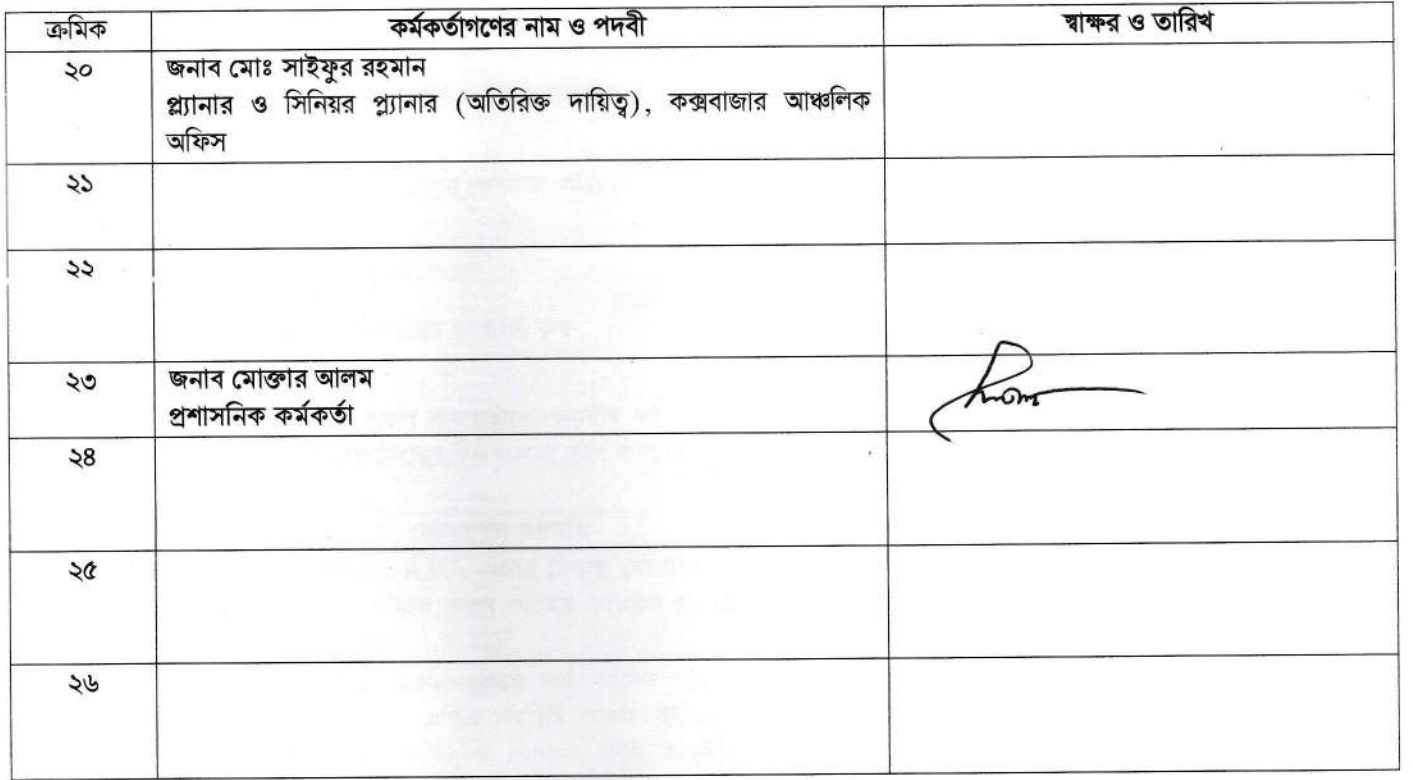 ক্রমিক কর্মকর্তাগণের নাম ও পদবী স্বাক্ষর ও তারিখ
২০ জনাব মোঃ সাইফুর রহমান
প্ল্যানার ও সিনিয়র প্ল্যানার (অতিরিক্ত দায়িত্ব), কক্সবাজার আঞ্চলিক
অফিস
২১
২২
২৩ জনাব মোক্তার আলম
প্রশাসনিক কর্মকর্তা
২৪
২৫
২৬